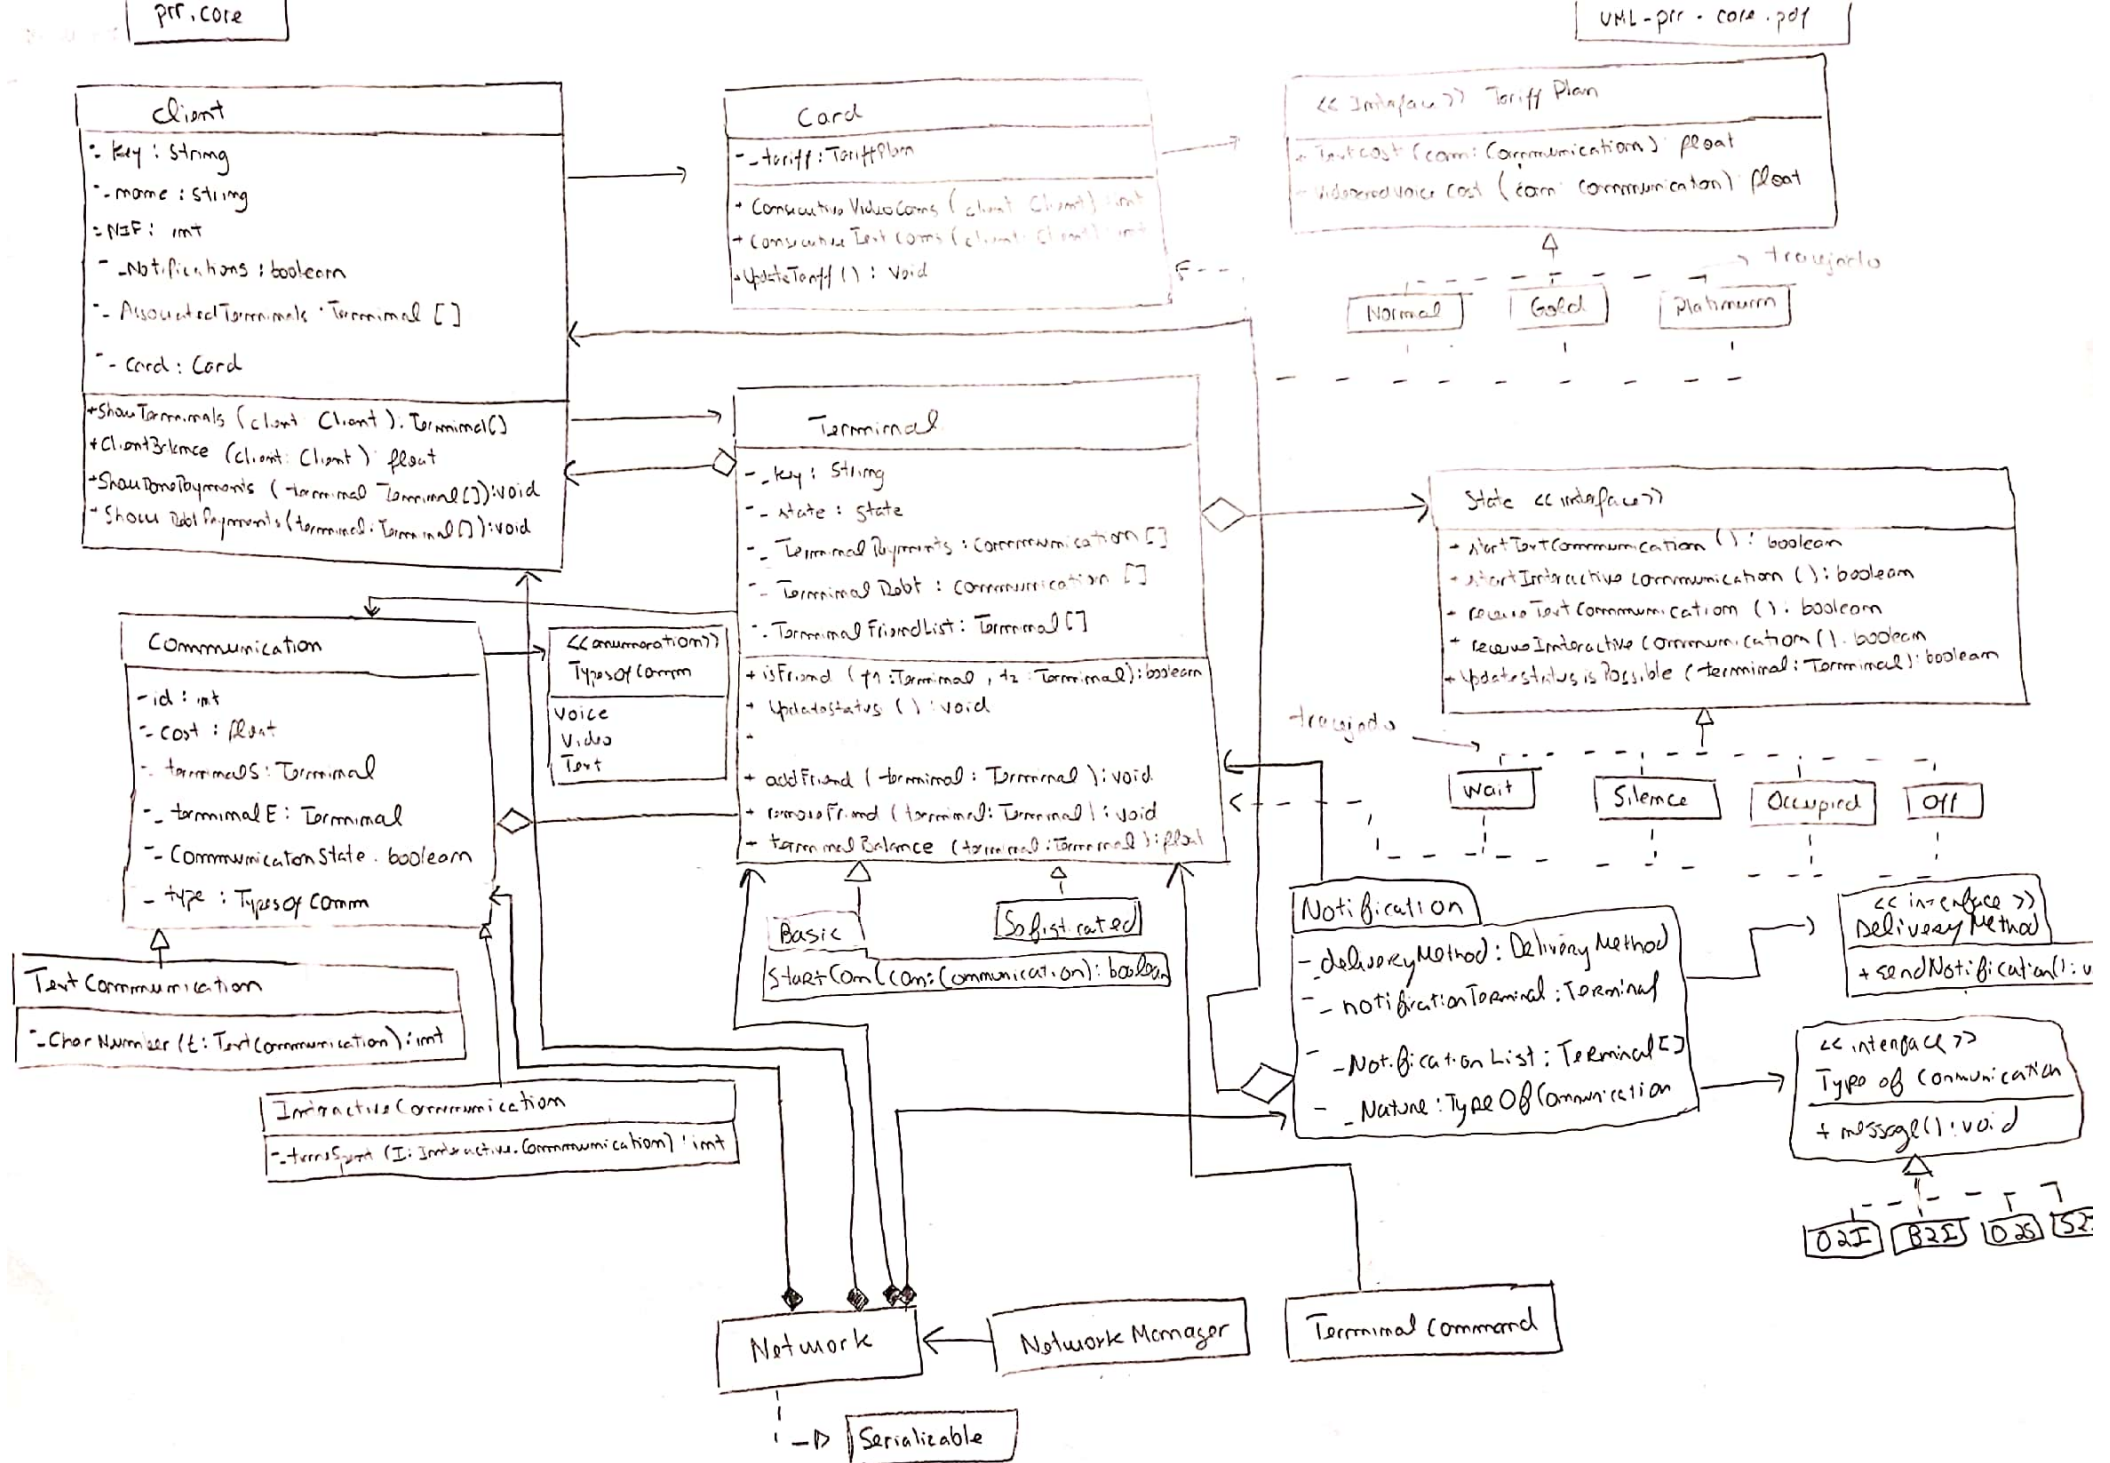 prr.core
UML-prr-core.pdf
Client
- _key : String
- _name : String
- _NIF : int
- _Notifications : boolean
- _AssociatedTerminals : Terminal []
- _card : Card
+ ShowTerminals (client Client) : Terminal[]
+ ClientBalance (client: Client) float
+ ShowDonePayments (terminal Terminal[]):void
+ Show DebtPayments (terminal: Terminal[]):void
Card
- _tariff : TariffPlan
+ ConsecutiveVideoComs (client Client) : int
+ ConsecutiveTextComs (client: Client) int
+ UpdateTariff () : void
<< Interface >> Tariff Plan
+ TextCost (com: Communication) float
cost (com communication) float
tracejado
Normal
Gold
Platinum
Terminal
- _key : String
- _state : state
- _TerminalPayments : Communication []
- _Terminal Debt : Communication []
- _TerminalFriendList : Terminal []
+ isFriend (t1 : Terminal , t2 : Terminal) : boolean
+ Updatestatus () : void
+
+ addFriend (terminal : Terminal ) : void
+ removeFriend (terminal: Terminal) : void
+ terminalBalance (terminal : Terminal ) : float
State << interface >>
+ startTextCommunication () : boolean
+ startInteractive communication () : boolean
+ receiveTextCommunication () : boolean
+ receiveInteractive communication () . boolean
+ Updatestatus is Possible (terminal : Terminal) : boolean
tracejado
Wait
Silence
Occupied
Off
Communication
- _id : int
- _cost : float
- _terminalS : Terminal
- _terminalE : Terminal
- _CommunicatonState . boolean
- type : TypesOf Comm
<< enumeration >>
TypesOfComm
Voice
Video
Text
Basic
StartCom (com: Communication) : boolean
Sofisticated
Notification
- _deliveryMethod : DeliveryMethod
- _notificationTerminal : Terminal
- _Notification List : Terminal []
- _Nature : Type Of Communication
<< interface >>
DeliveryMethod
+ sendNotification() : v
<< interface >>
Type of Communication
+ message() : void
O2I
B2I
O2S
S2
TextCommunication
- _CharNumber (t : TextCommunication) : int
InteractiveCommunication
- _timeSpent (I : Interactive.Communication) : int
Network
Network Manager
Terminal Command
Serializable